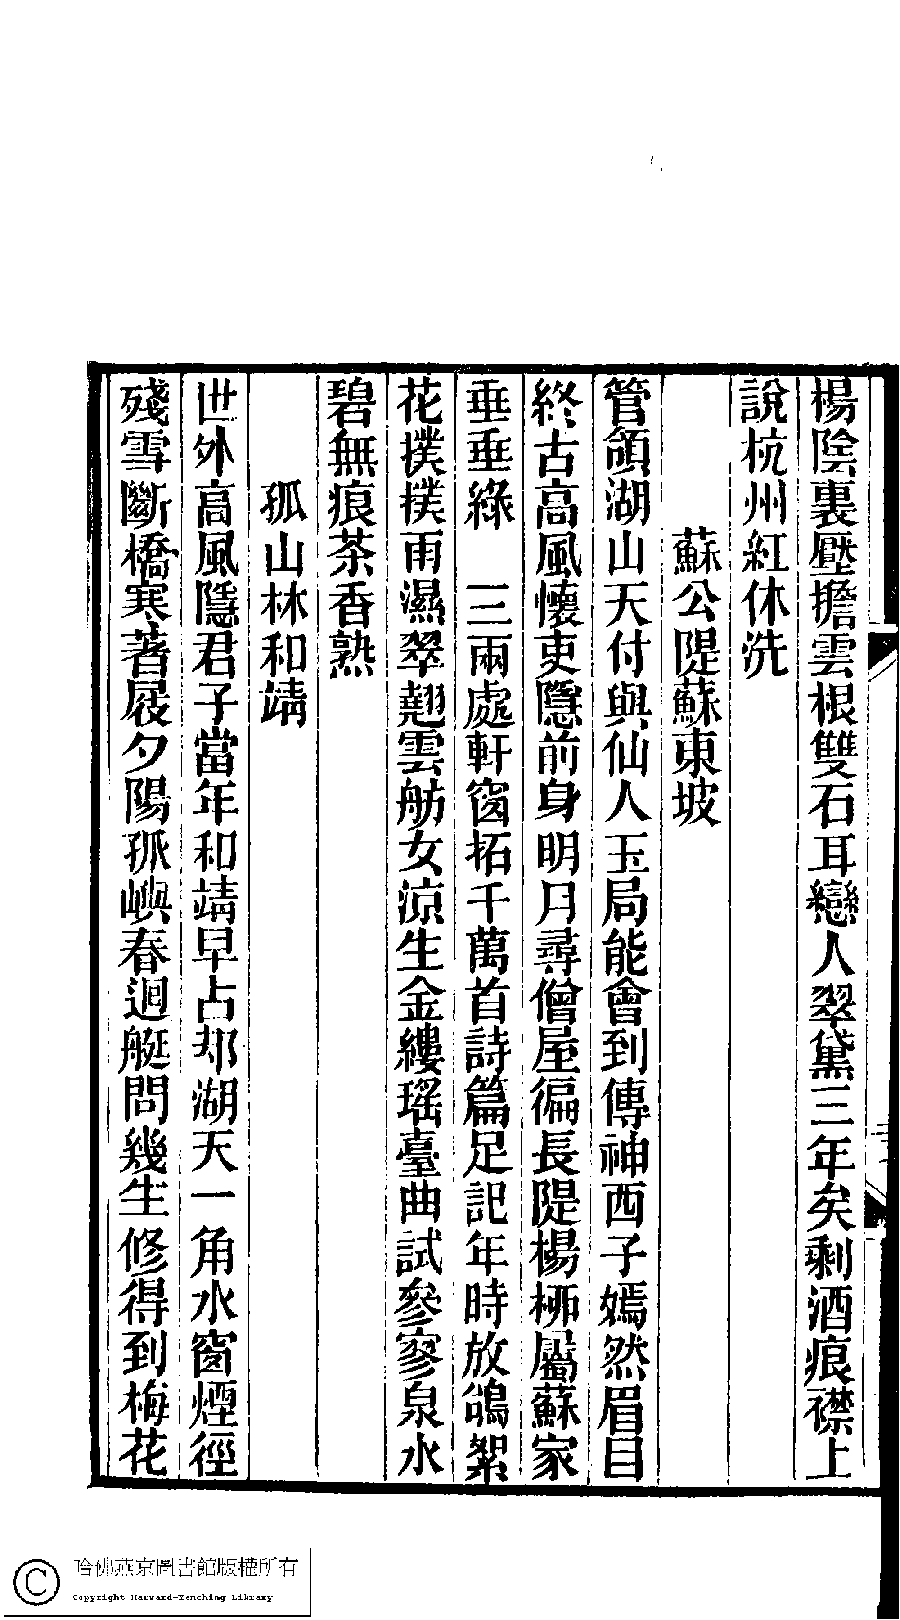 楊陰裏壓擔雲根雙石耳戀人翠黛三年矣剩酒痕襟上
說杭州紅休洗
蘇公隄蘇東坡
管領湖山天付與仙人玉局能會到傳神西子嫣然眉目
終古高風懷吏隱前身明月尋僧屋徧長隄楊柳屬蘇家
垂垂綠　三兩處軒窗拓千萬首詩篇足記年時放鴿絮
花撲撲雨濕翠翹雲舫女涼生金縷瑤臺曲試參寥泉水
碧無痕茶香熟
孤山林和靖
世外高風隱君子當年和靖早占却湖天一角水窗煙徑
殘雪斷橋寒著屐夕陽孤嶼春迴艇問幾生修得到梅花
哈佛燕京圖書館版權所有
Copyright Harvard-Yenching Library